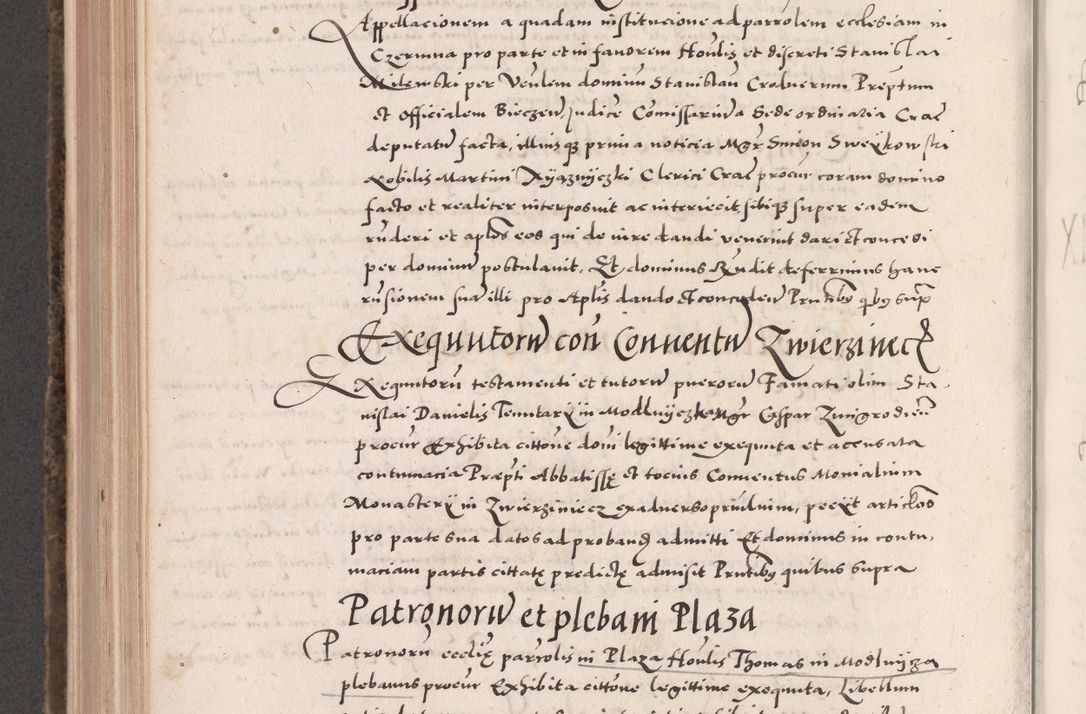 Appellacionem a quadam institucione ad parrolem ecclesiam in
Czermna pro parte et in favorem Honlis et discreti Stanislai
Milewski per Venlem dominum Stanislau Crolverum Preptum
et Officialem Bieczen judice Comissarium a Sede ordinaria Crac
deputatu facta, illiusq prima noticia Mgr Simon Sweykowski
Nobilis Martini Xyaznyczki Clerici Crac procur coram domino
facto et realiter interposuit ac interiecit, sibiq super eadem
rnderi et aplos eos qui de iure dandi venerint dari et concedi
per dominum postulavit. Et dominus Rndit deferrimus hanc
rnsionem sua illi pro Aplis dando et conceden Prntibq qbq supra
Exequutoru con Conventu Zwierzineck
Exequutoru testamenti et tutoru pueroru Famati olim Sta
nislai Danielis Tenutary in Modlnycza Mgr Caspar Zmigrodien
procur Exhibita cittone domi legittime exequuta et accusata
contumacia Præpti Abbatissę et tocius Conventus Monialium
Monastery in Zwierziniecz ex adverso prin, peeyt articlos
pro parte sua datos ad proband admitti Et dominus in contu,
maciam partis cittatę predictę admisit Prntibq quibus supra
Patronoru et plebani Plaza
Patronoru ecclię parrolis in Plaza Honlis Thomas in Modlnycza
plebanus procur Exhibita cittone legittime exequuta, Libellum